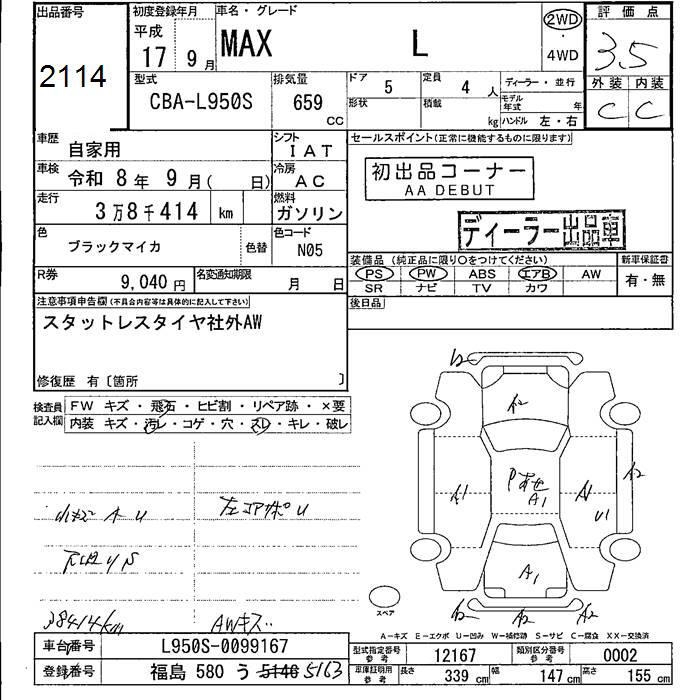 出品番号
2114
初度登録年月
平成
17 9月
車名・グレード
MAX L
2WD
・
4WD
評価点
3.5
外装 内装
C C
型式
CBA-L950S
排気量
659
CC
ドア 5
形状
定員 4 人
積載 kg
ディーラー・並行
モデル年式 年
ハンドル 左・右
車歴
自家用
シフト
IAT
車検
令和 8年 9月( 日)
冷房
AC
走行
3万8千414 km
燃料
ガソリン
色
ブラックマイカ
色替
色コード
N05
R券
9,040円
名変通知期限
月 日
セールスポイント(正常に機能するものに限ります)
初出品コーナー
AA DEBUT
ディーラー出品車
装備品 (純正品に限り○をつけてください)
新車保証書
PS PW ABS エアB AW
SR ナビ TV カワ
有・無
後日品
注意事項申告欄(不具合内容等は具体的に記入して下さい)
スタットレスタイヤ社外AW
修復歴 有〔箇所 〕
検査員記入欄
FW キズ・飛石・ヒビ割・リペア跡・×要
内装 キズ・汚レ・コゲ・穴・スレ・キレ・破レ
U
U
S
38414km
AWキズ
A2
A1
A1
A1
U1
A2
A1
A2
スペア
A-キズ E-エクボ U-凹み W-補修跡 S-サビ C-腐食 XX-交換済
車台番号
L950S-0099167
登録番号
福島 580 う 5146 5163
型式指定番号
参考
12167
類別区分番号
参考
0002
車庫証明用
参考
長さ 339 cm
幅 147 cm
高さ 155 cm